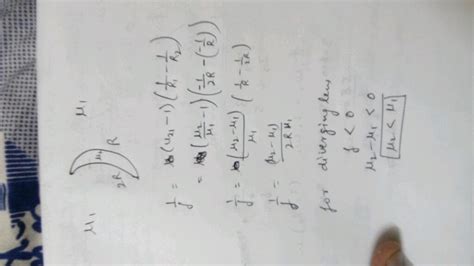 μ₁ μ₂ μ₁
2R R
1/f = (μ₂₁ - 1) (1/R₁ - 1/R₂)
= (μ₂/μ₁ - 1) (-1/2R - (-1/R))
1/f = (μ₂-μ₁/μ₁) (1/R - 1/2R)
1/f = μ₂-μ₁/2Rμ₁
for diverging lens
f < 0
μ₂-μ₁ < 0
μ₂ < μ₁